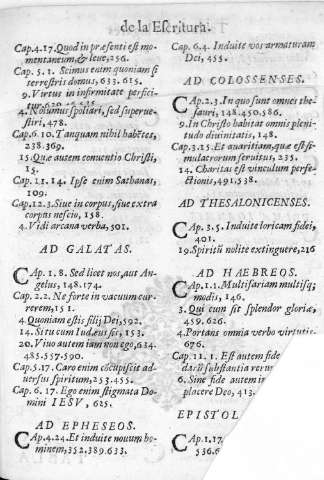 de la Escritura.
Cap.4.17. Quod in præsenti est mo-
mentaneum & leue, 256.
Cap. 5. 1. Scimus enim quoniam si
terrestris domus, 633. 615.
9. Virtus in infirmitate perfici-
tur.
4. Nolumus spoliari, sed superue-
stiri, 478.
Cap.6.10. Tanquam nihil habētes,
238.369.
15. Quæ autem conuentio Christi,
15.
Cap. 11. 14. Ipse enim Sathanas,
109.
Cap.12.3. Siue in corpus, siue extra
corpus nescio, 158.
4. Vidi arcana verba, 501.
AD GALATAS.
CAp. 1. 8. Sed licet nos, aut An-
gelus, 148.174.
Cap. 2.2. Ne forte in vacuum cur-
rerem, 151.
4. Quoniam estis filij Dei, 592.
14. Situ cum Iudæus sis, 153.
20. Viuo autem iam non ego, 634.
485.557.590.
Cap.5.17. Caro enim cōcupiscit ad-
uersus spiritum, 253.455.
Cap. 6. 17. Ego enim stigmata Do-
mini IESV, 625.
AD EPHESEOS.
CAp.4.24. Et induite nouum ho-
minem, 352.389.633.
Cap. 6.4. Induite vos armaturam
Dei, 455.
AD COLOSSENSES.
CAp.2.3. In quo sunt omnes the-
sauri, 148.450.586.
9. In Christo habitat omnis pleni-
tudo diuinitatis, 148.
Cap.3.15. Et auaritiam, quæ est si-
mulacrorum seruitus, 235.
14. Charitas est vinculum perfe-
ctionis, 491.538.
AD THESALONICENSES.
CAp. 3.5. Induite loricam fidei,
401.
19. Spiritū nolite extinguere, 216
AD HAEBREOS.
CAp.1.1. Multifariam multisq;
modis, 146.
3. Qui cum sit splendor gloriæ,
459.626.
4. Portans omnia verbo virtutis
676.
Cap. 11. 1. Est autem fide
darū substantia rerum
6. Sine fide autem im
placere Deo, 413.
EPISTOL
CAp.1.17.
536.6